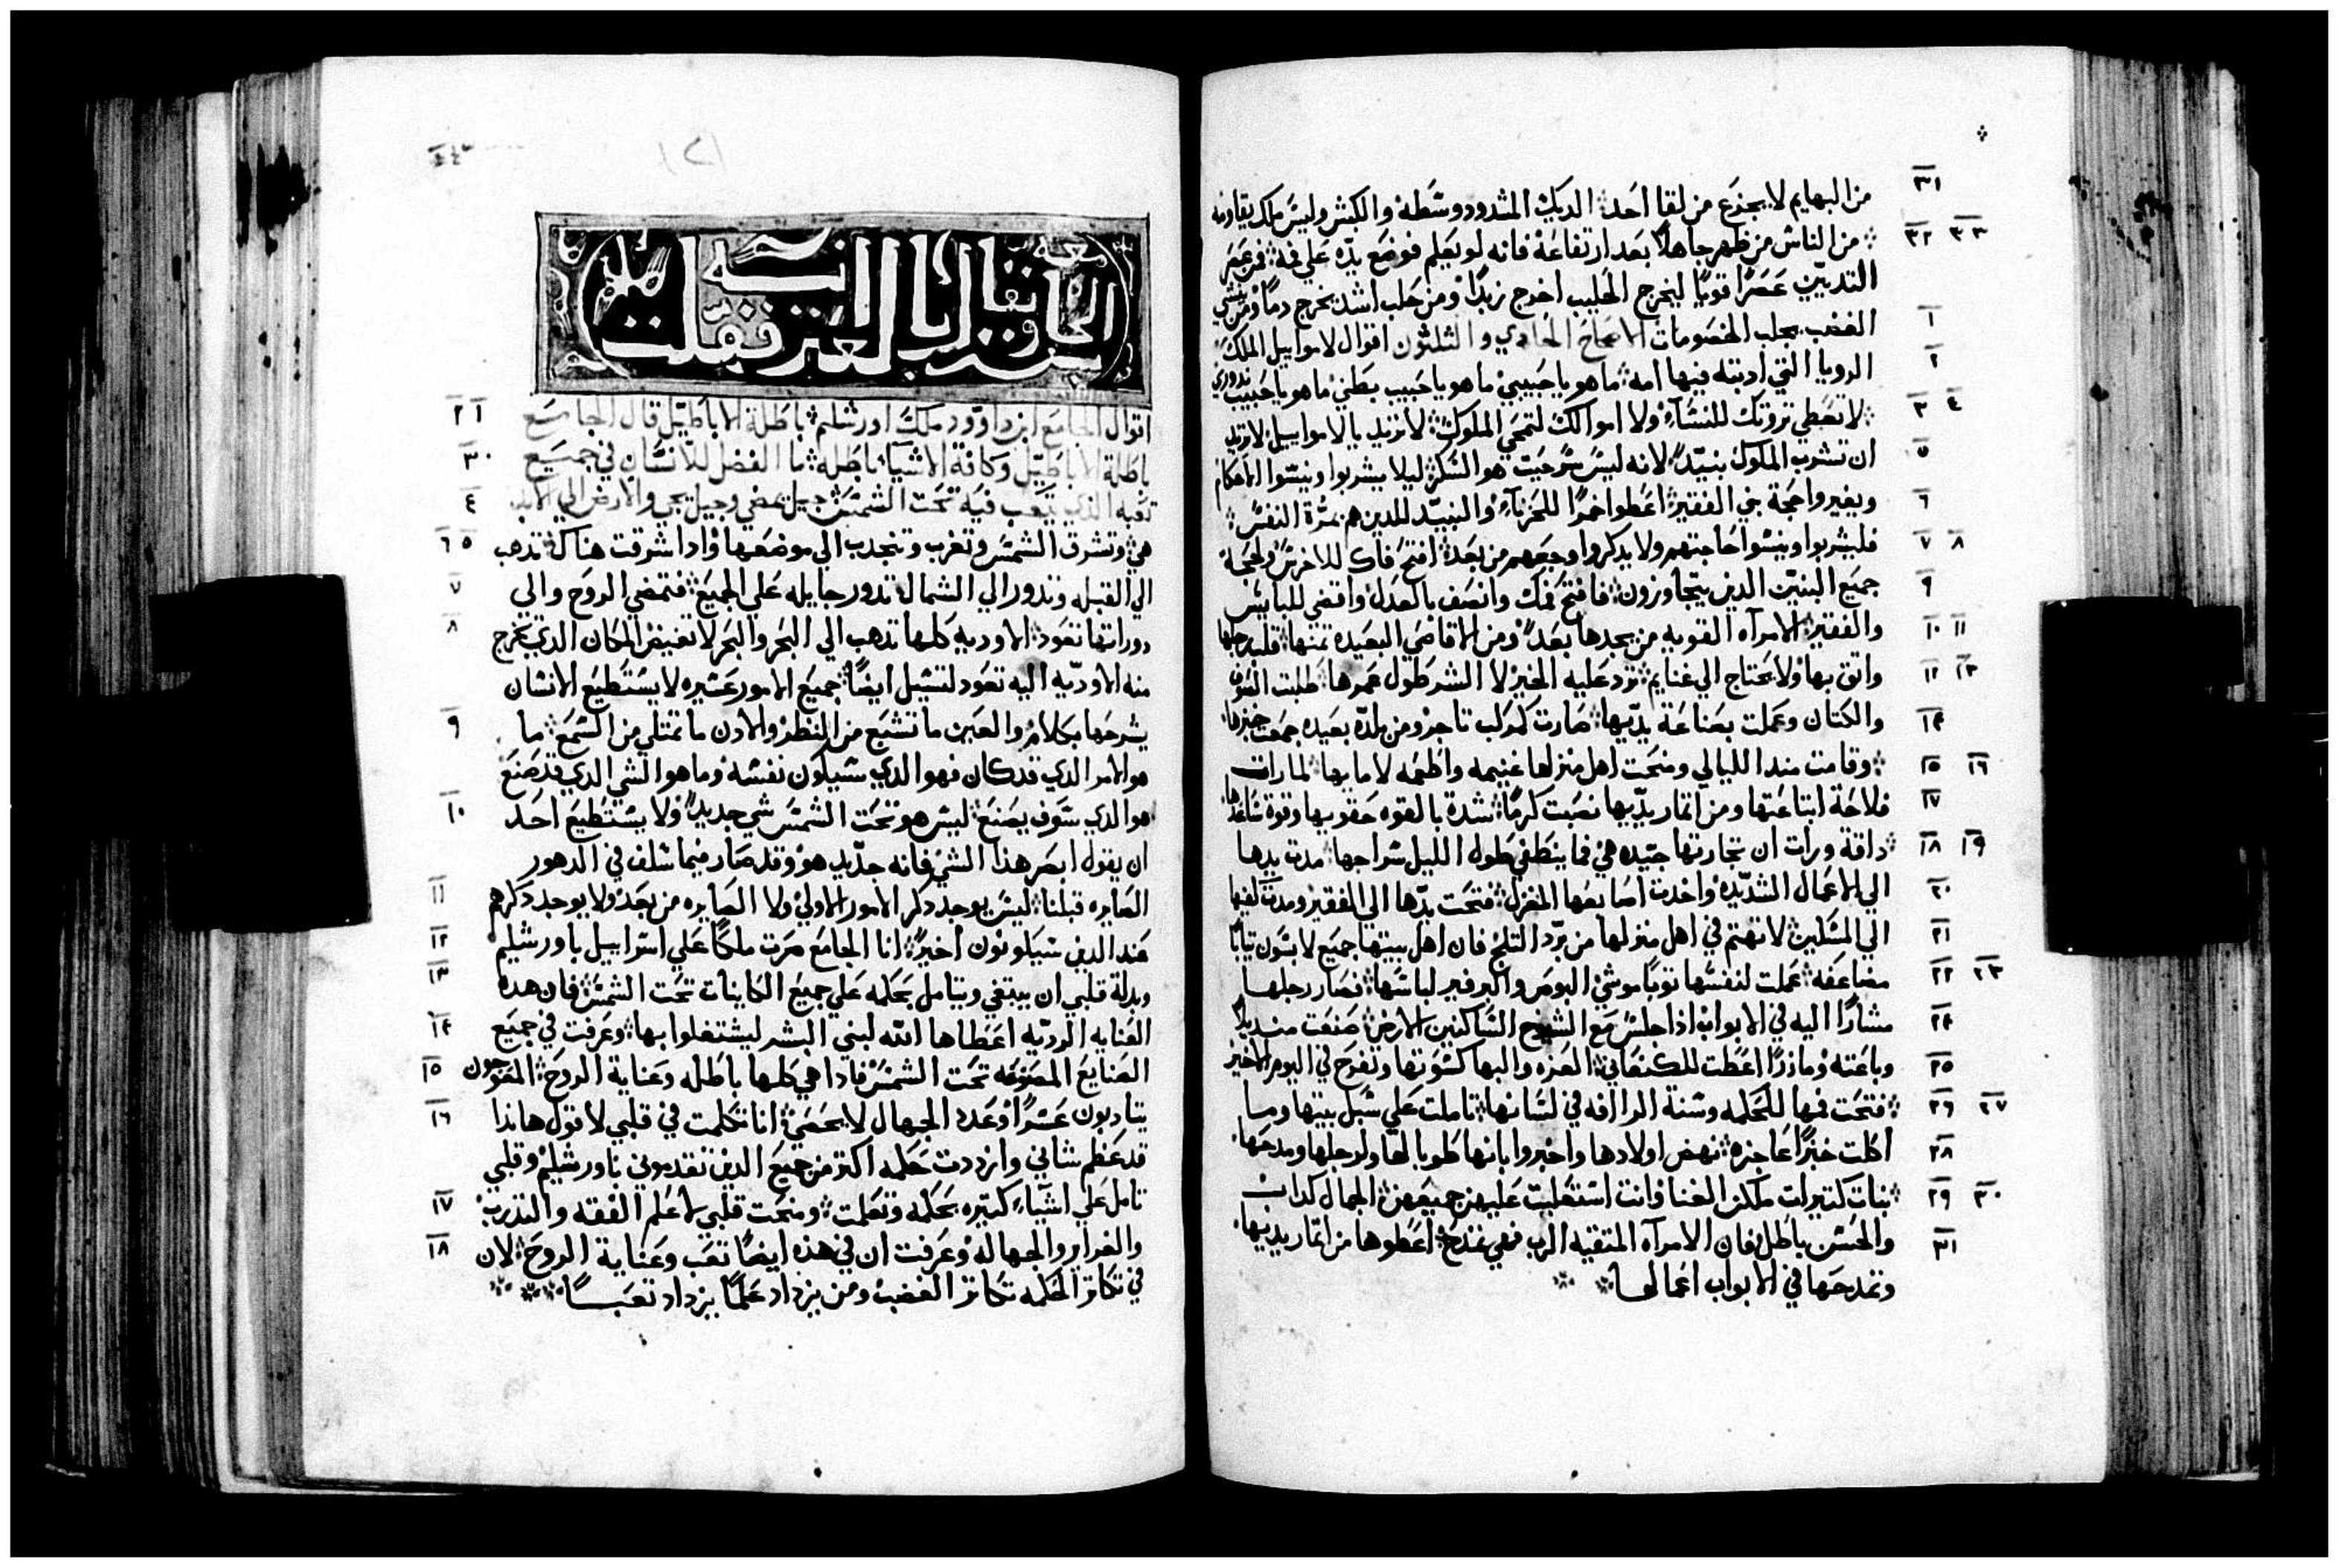 ٣١ من البهايم لا يجزع من لقا احد الديك المشدود وسَطه والكبش وليسَ ملك يقاومه
٣٢ ٣٣ من الناس من ظهر جاهلًا بعد ارتفاعه فانه لو يعلم فوضع يدّه علي فمه فمن عصر
الثديين عصرًا قويًا ليخرج الحليب اخرج زبدًا ومن حلب اشد يخرج دمًا ومن
١ الغضب يجلب الخصومات الاصحاح الحادي والثلثون اقوال لاموابيل الملك
٢ الرويا التي ادبته فيها امه ما هو يا حبيبي ما هو يا حبيب بطني ما هو يا حبيب ندوري
٣ ٤ لا تعطي تروتك للنسَاء ولا اموالك لتمحي الملوك لا تريد يا لاموابيل لا تريد
٥ ان تشرب الملوك نبيدًا لانه ليسَ سَر حيت هو السَكر ليلا يشربوا وينسَوا الاحكام
٦ ويغيروا حجة بني الفقير اعطوا خمرًا للحزناء والنبيد للدين هم بمرّة النفسَ
٧ ٨ فليشربوا وينسَوا حاجتهم ولا يدكروا وجعهم من بعد افتح فاك للاخرسَ ولحجة
٩ جميع البنين الدين يتجاوزون فافتح فمك وانصف بالعدل واقضي للبايسَ
١٠ ١١ والفقير الامرآه القويه من يجدها بعد ومن الاقاصي البعيده تمنها قلب رجلها
١٢ ١٣ واتق بها ولا يحتاج الي غنايم ترد عليه الخير لا الشر طول عمرها طلبت الصوف
١٤ والكتان وعملت بصناعة يدّيها صارت كمركب تاجر ومن بلدّه بعيده جمعت خبزها
١٥ ١٦ وقامت مند الليالي ومنحت اهل منزلها غنيمه واطعمه لامايها لما رات
١٧ فلاحة ابتاعتها ومن اتمار يدّيها نصبت كرمًا شدة بالقوه حقويها وقوة سَاعدها
١٨ ١٩ داقة ورات ان تجارتها جيّده هي فما ينطفي طول الليل سَراجها مدت يدها
٢٠ الي الاعمال الشديّده واخدت اصابعها المغزل فتحت يدّها الي الفقير ومدت كفيها
٢١ الي المسَكين لا تهتم في اهل منزلها من برّد التلج فان اهل بيتها جميع لابسَون تيابًا
٢٢ ٢٣ مضاعفه عملت لنفسَها توبًا موشي البوص والبرفير لباسَها فصار رجلها
٢٤ مشارًا اليه في الابواب اذا جلسَ مع الشيوخ السَاكنين الارض صنعت منديلًا
٢٥ وباعته ومازرًا اعطت للكنعاني العزه والبها كسَوتها وتفرح في اليوم الاخير
٢٦ ٢٧ فتحت فمها للحكمه وسَنة الرافه في لسَانها تاملت علي سَبل بيتها وما
٢٨ اكلت خبزًا عاجزه نهض اولادها واخبروا بانها طوبا لها ولرجلها ومدحها
٢٩ ٣٠ بنات كتيرات ملكن الغنا فانت استعليت عليهن جميعهن الجمال كداب
٣١ والحسَن باطل فان الامرآه المتقيه الرب فهي تمتدح اعطوها من اتمار يديها
وتمدحها في الابواب اعمالها
١ ٢ اقوال الجامع ابن داوود ملك اورشليم باطلة الاباطيّل قال الجامع
٣ باطلة الاباطيّل وكافة الاشيا باطله ما الفضل للانسَان في جميع
٤ تعبه الذي يتعب فيه تحت الشمسَ جيل يمضي وجيل يجي والارض الي الابد
٥ ٦ هي وتشرق الشمسَ وتغرب وتنجدب الي موضعها وادا شرقت هناك تدهب
٧ الي القبله وتدور الي الشمال تدور جايله علي الجميع فتمضي الروح والي
٨ دوراتها تعود الاوديه كلها تدهب الي البحر والبحر لا تفيض المكان الدي تخرج
منه الاوديّه اليه تعود لتسَيل ايضًا جميع الامور عسَيره لا يستطيع الانسَان
٩ يشرحها بكلام والعين ما تشبع من النظر والادن ما تمتلي من السَمع ما
هو الامر الدي قد كان فهو الدي سَيكون نفسَه وما هو الشي الدي قد صنع
١٠ هو الدي سَوف يصنع ليسَ هو تحت الشمسَ شي جديدًا ولا يسَتطيع احد
ان يقول ابصر هذا الشي فانه جدّيد هو وقد صار فيما سَلف في الدهور
١١ الصايره قبلنا ليسَ يوجد دكر الامور الاولي ولا الصايره من بعد ولا يوجد دكرهم
١٢ عند الدين سَيكونون اخيرًا انا الجامع صرت ملكًا علي اسَراييل باورشليم
١٣ وبدلة قلبي ان يبتغي ويتامل بحكمه علي جميع الكاينات تحت الشمسَ فان هده
١٤ العنايه الرديّه اعطاها الله لبني البشر ليشتغلوا بها وعرفت في جميع
١٥ الصنايع المصنوعه تحت الشمسَ فادا هي كلها باطله وعناية الروح المعوجون
١٦ يتادبون عسَرًا وعدد الجهال لا يحصي انا تكلمت في قلبي لاقول هاندا
قد عظم شاني وازددت حكمه اكتر من جميع الدين تقدموني باورشليم وقلبي
١٧ تامل علي اشيّاء كتيّره بحكمه وتعلمت ومنحت قلبي لاعلم الفقه والتدرب
١٨ والضرار والجهاله وعرفت ان في هذه ايضًا تعب وعناية الروح لان
في تكاتر الحكمه تكاتر الغضب ومن يزداد علمًا يزداد تعبًا